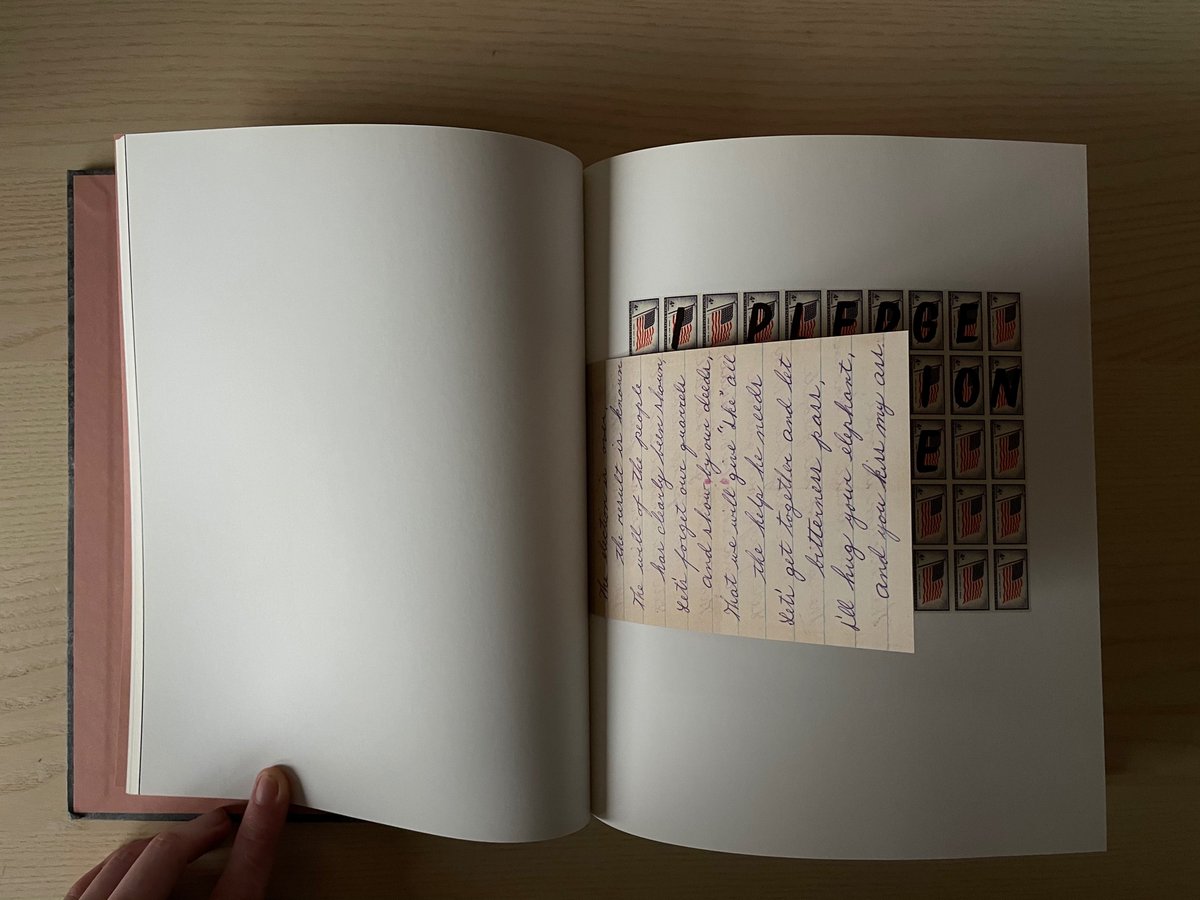 I PLEDGE
ION
E
The election is over,
the result is known
the will of the people
has clearly been shown,
Let's forget our quarrels
and show by our deeds,
That we will give "Ike" all
the help he needs
Let's get together and let
bitterness pass,
I'll hug your elephant,
and you kiss my ass.